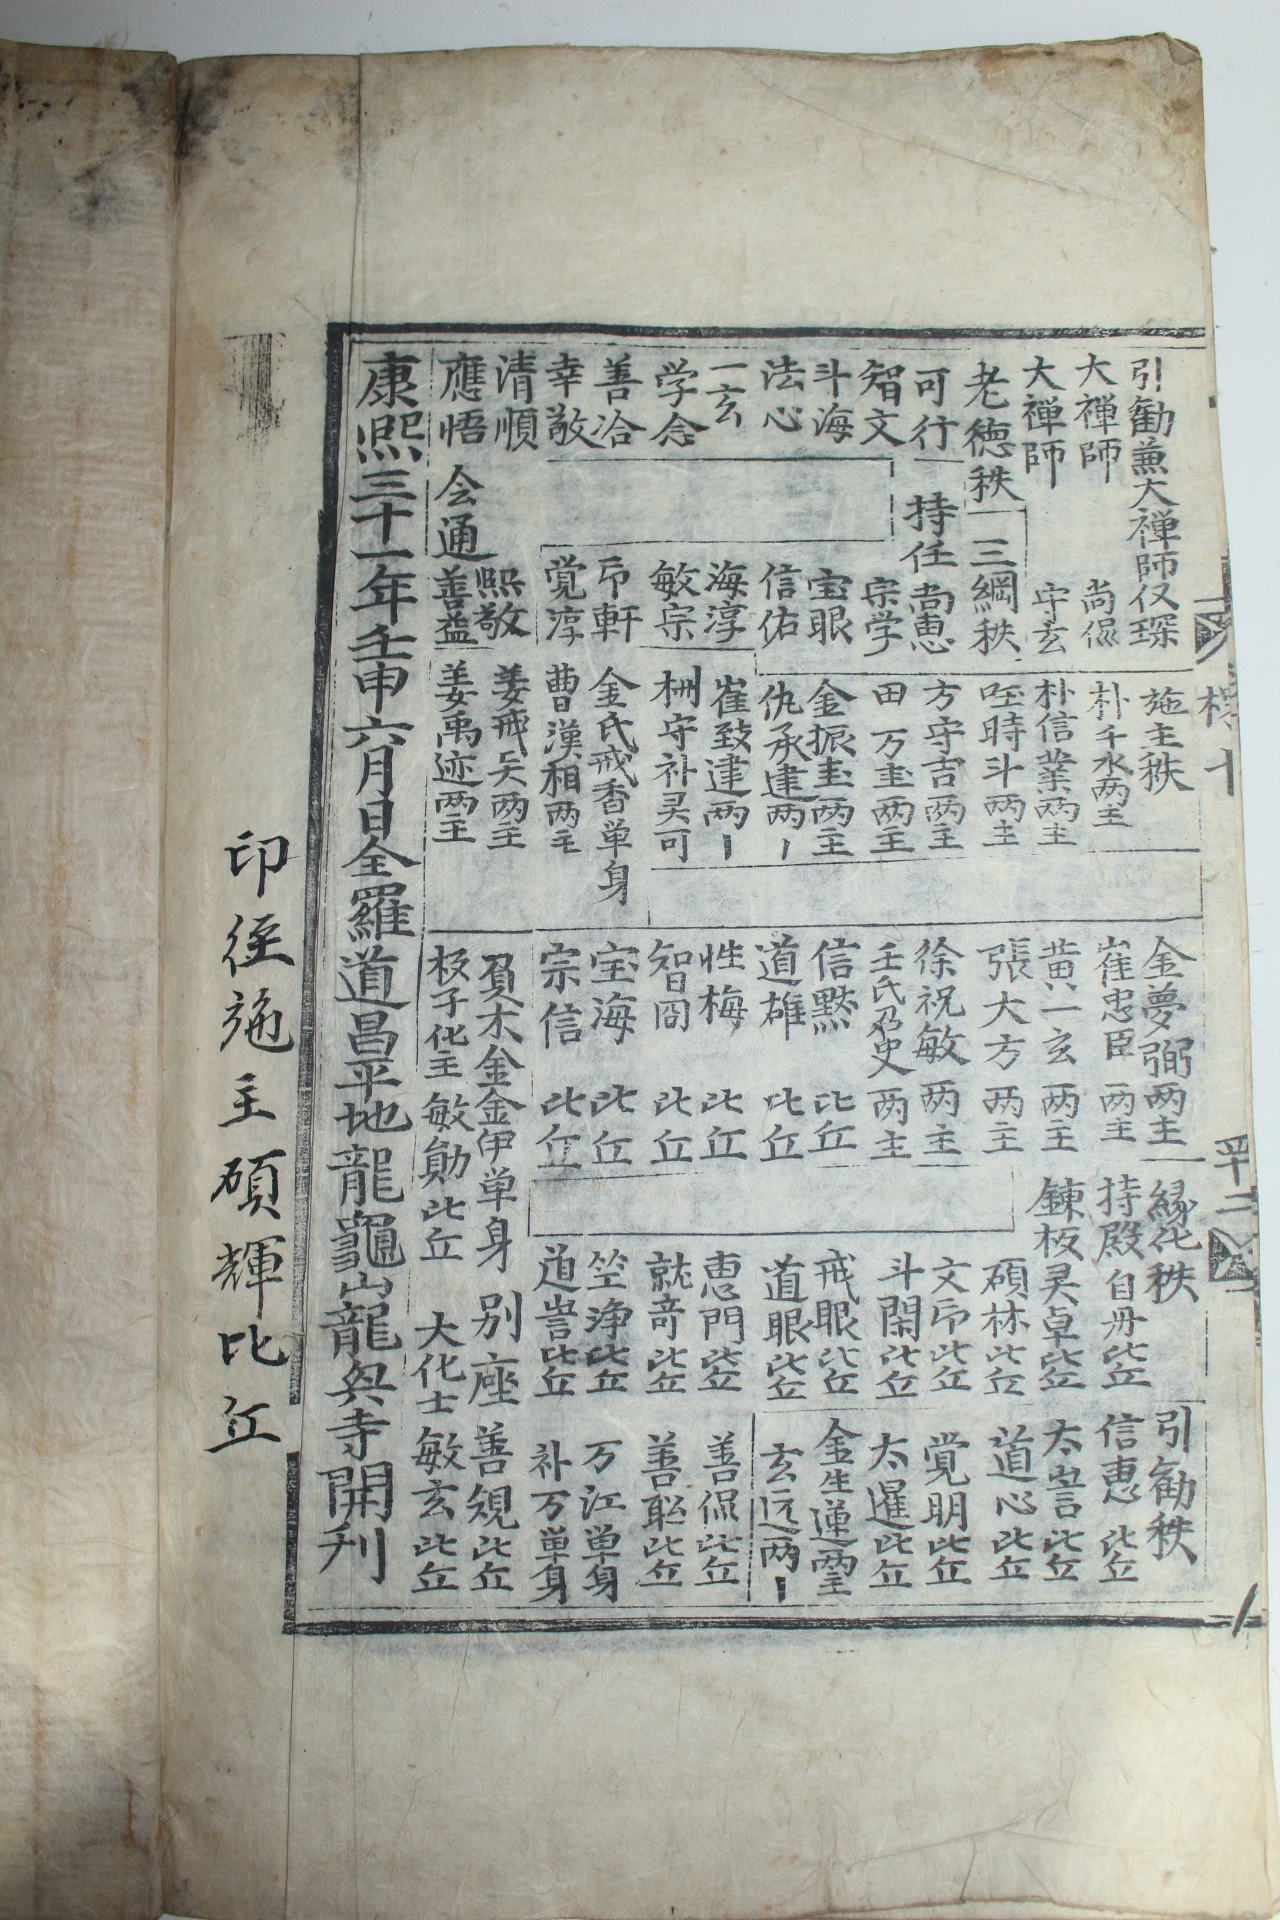 引勸兼大禪師仅琛
大禪師 尚侃
大禪師 守玄
老德秩 三綱秩
可行 持任 尚惠
智文 宗学
斗海 宝眼
法心 信佑
一玄 海淳
学念 敏宗
善洽 印軒
幸敬 覚淳
清順 熙敬
應悟 会通 善益
施主秩
朴千水两主
朴信業两主
時斗两主
方守吉两主
田万圭两主
金振圭两主
仇承建两
崔致建两
守补
金氏戒香单身
曹漢相两主
姜戒 两主
姜禹迹两主
金夢弼两主
崔忠臣 两主
黄一玄 两主
張大方 两主
徐祝敏 两主
壬氏召史 两主
信黙 比丘
道雄 比丘
性梅 比丘
智冏 比丘
宝海 比丘
宗信 比丘
金金伊单身
板子化主 敏勛比丘
緣化秩
持殿 自册比丘
鍊板 灵卓比丘
碩林比丘
文印比丘
斗閑比丘
戒眼比丘
道眼比丘
惠門比丘
就奇比丘
竺净比丘
道訔比丘
別座 善規比丘
大化士 敏玄比丘
引勸秩
信惠比丘
太訔比丘
道心比丘
覚明比丘
太暹比丘
金生蓮两主
玄远两
善侃比丘
善聡比丘
万江单身
补万单身
康熙三十一年壬申六月日全羅道昌平地龍龜山龍興寺開刊
印徑施主碩輝比丘